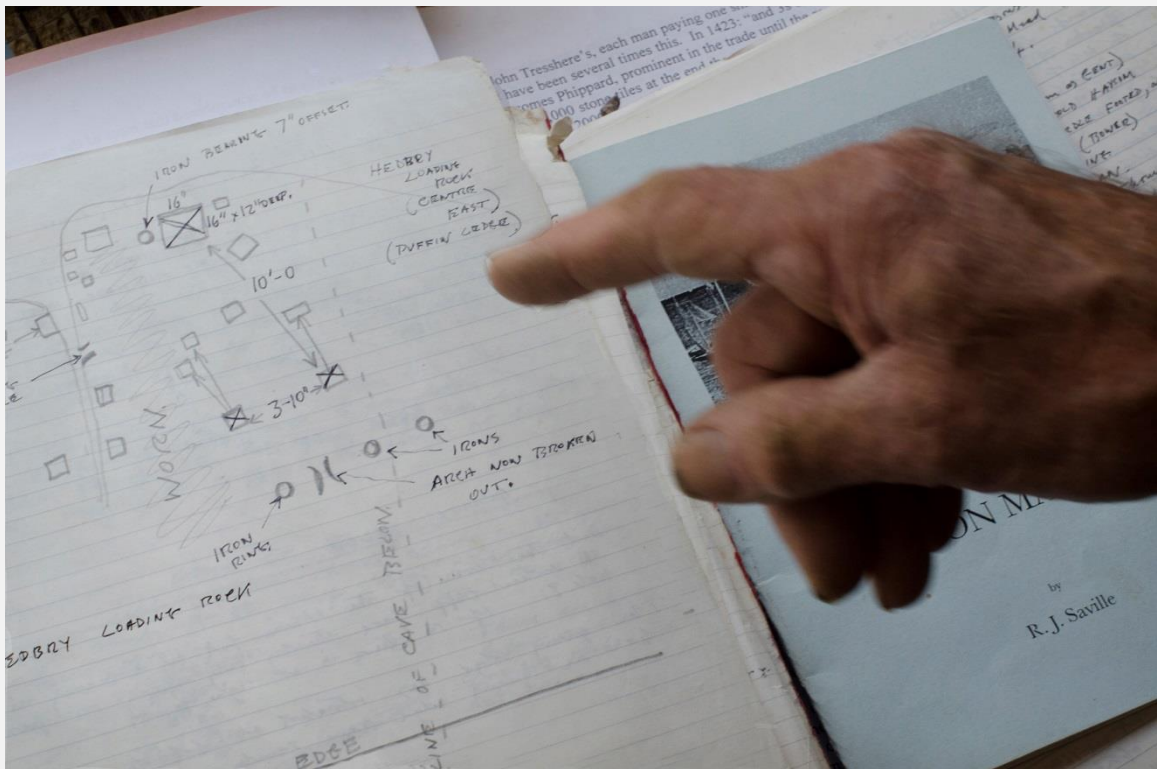 ohn Tresshere's, each man paying one
have been several times this. In 1423: "and 3s
comes Phippard, prominent in the trade until the
000 stone tiles at the end the
200
IRON BEARING 7" OFFSET
16"
16" x 12" DEEP.
HEDBRY
LOADING
ROCK
(CENTRE
EAST)
(PUFFIN LEDGE)
10'-0
3-10"
WORN.
IRONS
ARCH NON BROKEN
OUT.
IRON
RING.
EDBRY LOADING ROCK
LINE OF CAVE BELOW
EDGE
ON MA
by
R. J. Saville